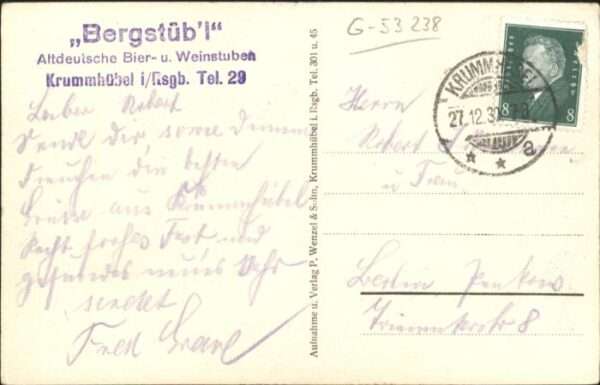 „Bergstüb'l"
Altdeutsche Bier- u. Weinstuben
Krummhübel i/Rsgb. Tel. 29
Lieber Robert
Sende Dir, sowie Deinem
die besten
Grüsse aus Krummhübel
Recht frohes Fest und
gesundes neues Jahr
sendet
Fred
Aufnahme u. Verlag P. Wenzel & Sohn, Krummhübel i. Rsgb. Tel. 301 u. 45
G-53 238
KRUMMHÜBEL
27.12.30
a
8 8
Herrn
Robert
u Frau
Berlin Pankow
8